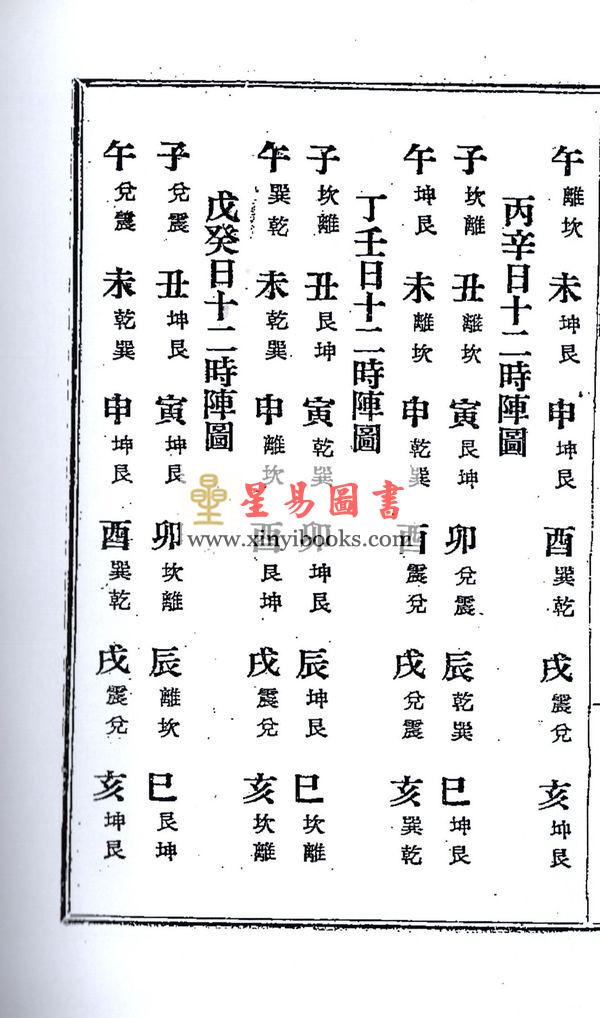 午離坎 未坤艮 申坤艮 酉巽乾 戌震兌 亥坤艮
丙辛日十二時陣圖
子坎離 丑離坎 寅艮坤 卯兌震 辰乾巽 巳坤艮
午坤艮 未離坎 申乾巽 酉震兌 戌兌震 亥巽乾
丁壬日十二時陣圖
子坎離 丑艮坤 寅乾巽 卯坤艮 辰坤艮 巳坎離
午巽乾 未乾巽 申離坎 酉艮坤 戌震兌 亥坎離
戊癸日十二時陣圖
子兌震 丑坤艮 寅坤艮 卯坎離 辰離坎 巳艮坤
午兌震 未乾巽 申坤艮 酉巽乾 戌震兌 亥坤艮
星易圖書
www.xinyibooks.com